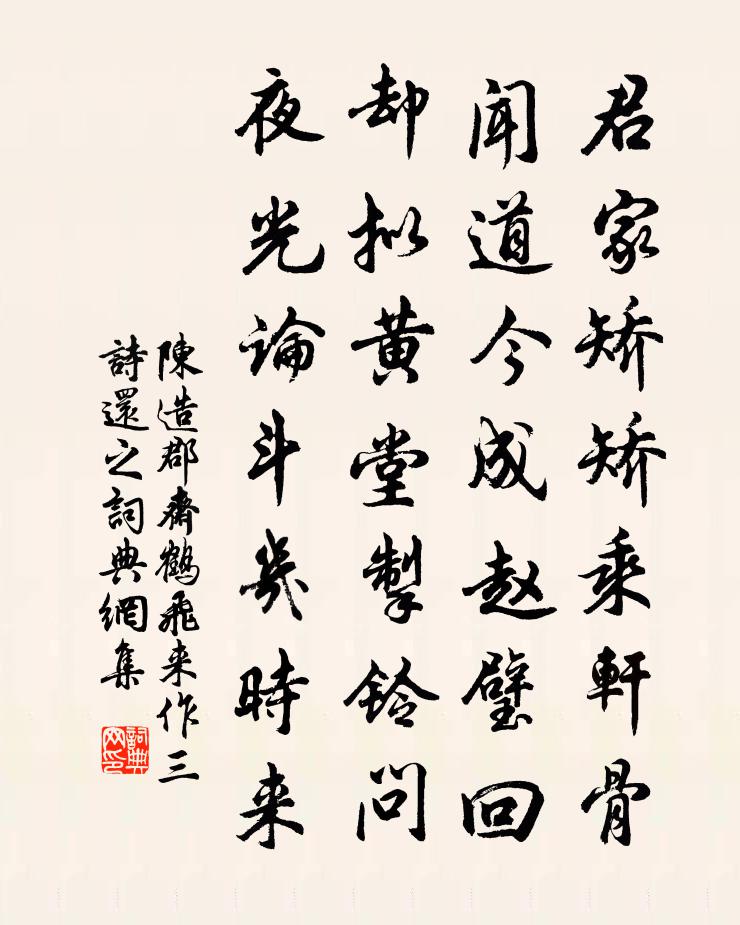 君家矫矫乘軒骨
闻道今成赵璧回
却拟黄堂掣铃问
夜光論斗幾時来
陳造郡齋鶴飛来作三
詩還之詞典網集
詞典网印